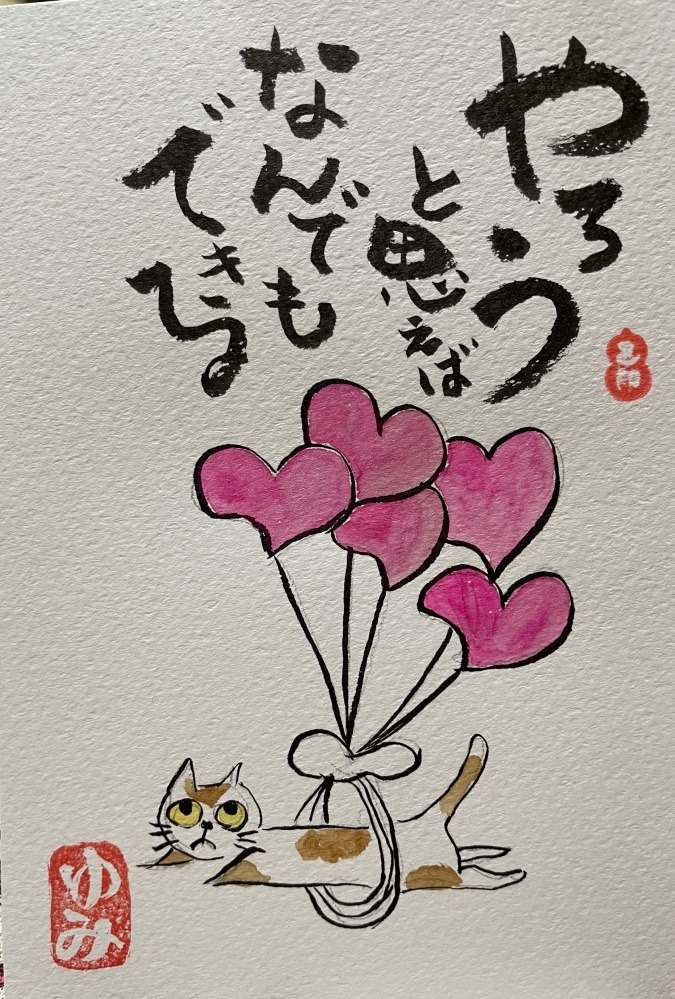 やろう
と思えば
なんでも
できる
ゆみ